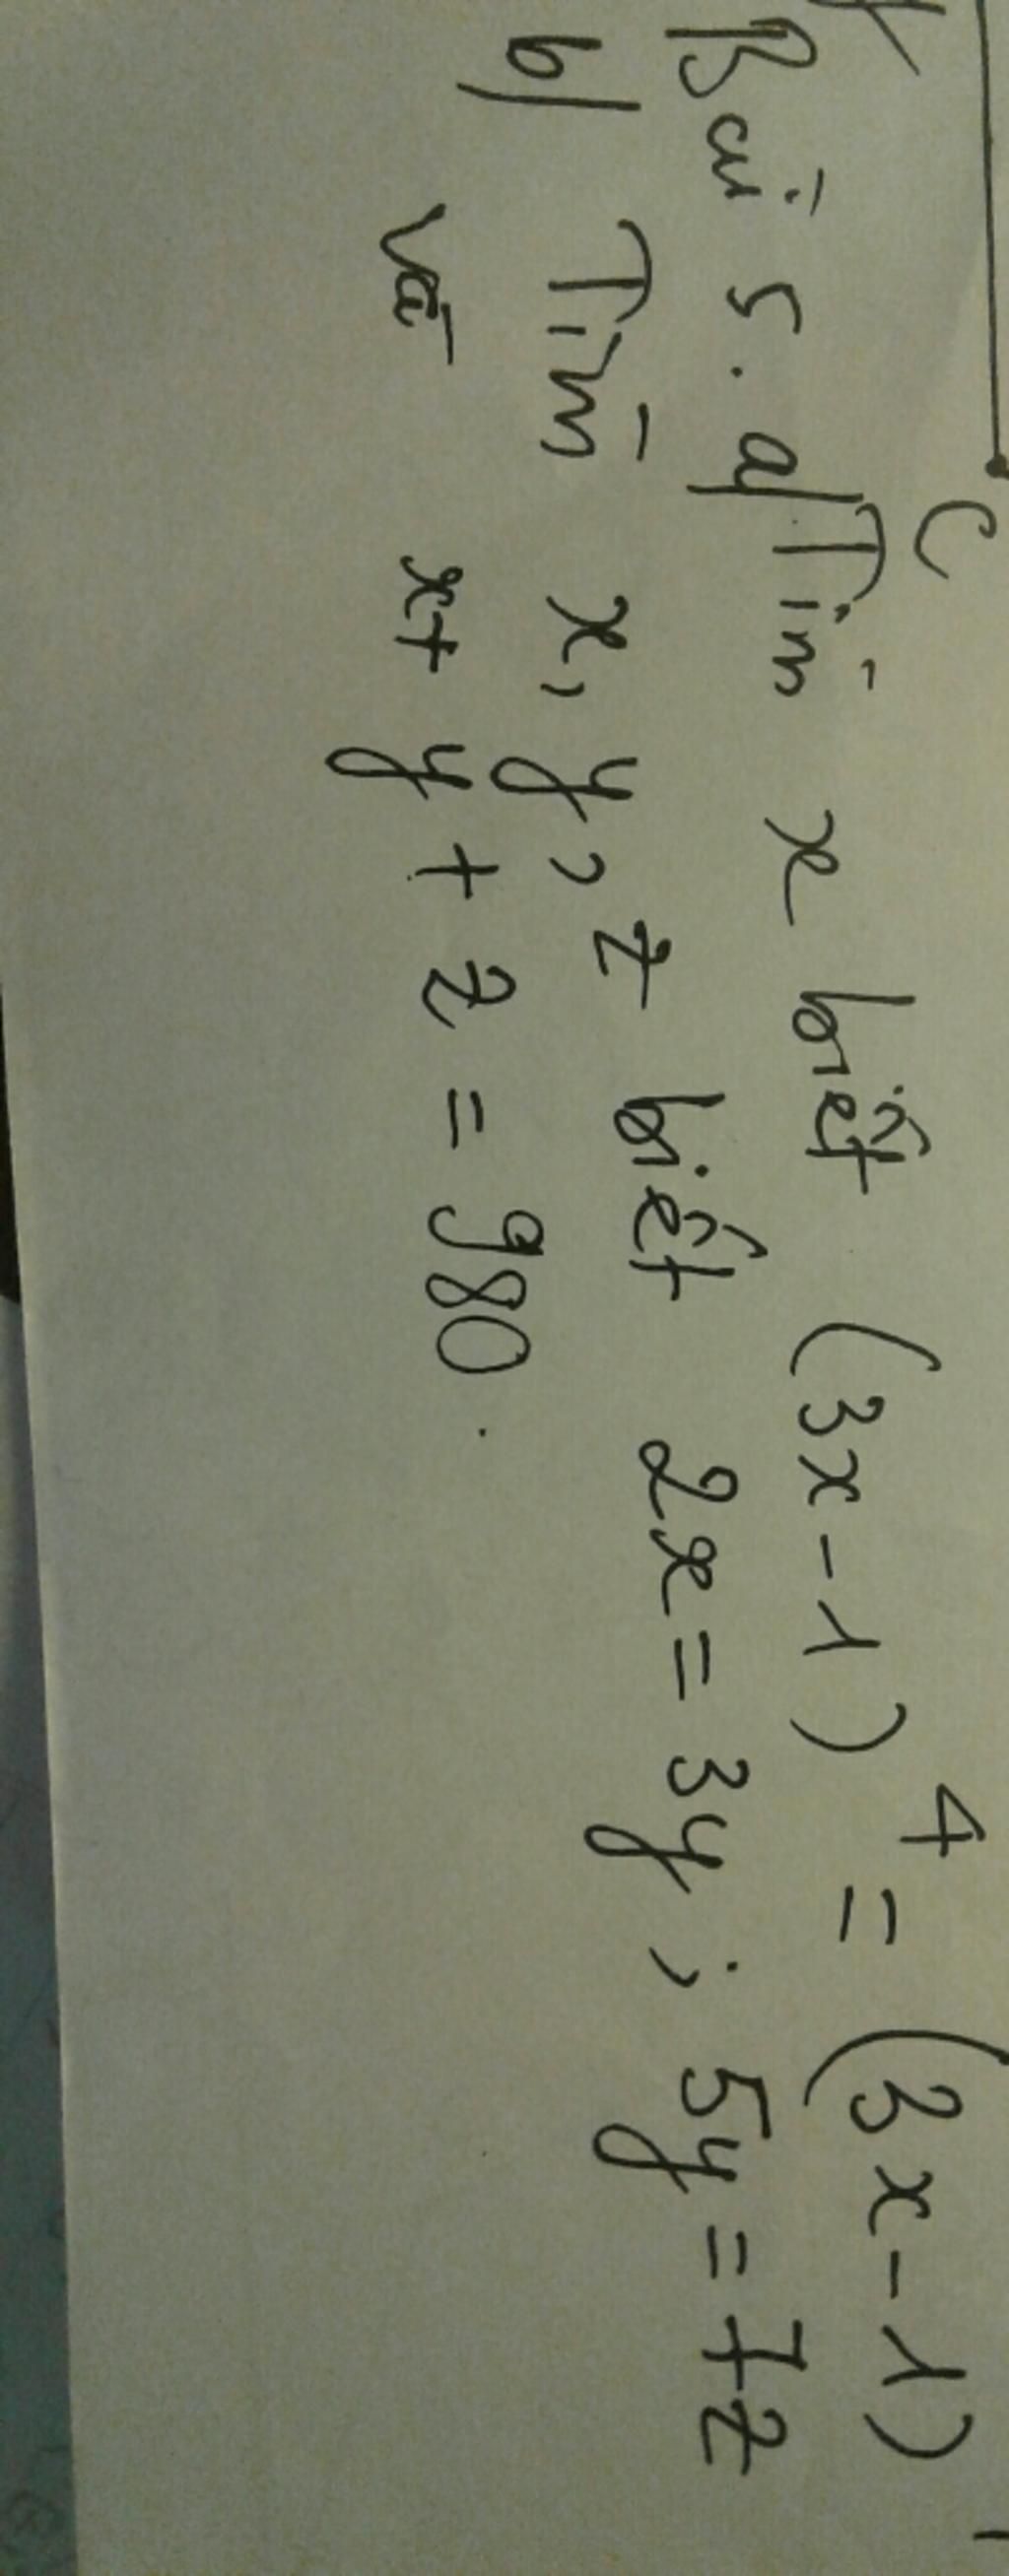 C
Bài 5. a/ Tìm x biết (3x-1)⁴ = (3x-1)
b/ Tìm x, y, z biết 2x = 3y ; 5y = 7z
và x + y + z = 980.